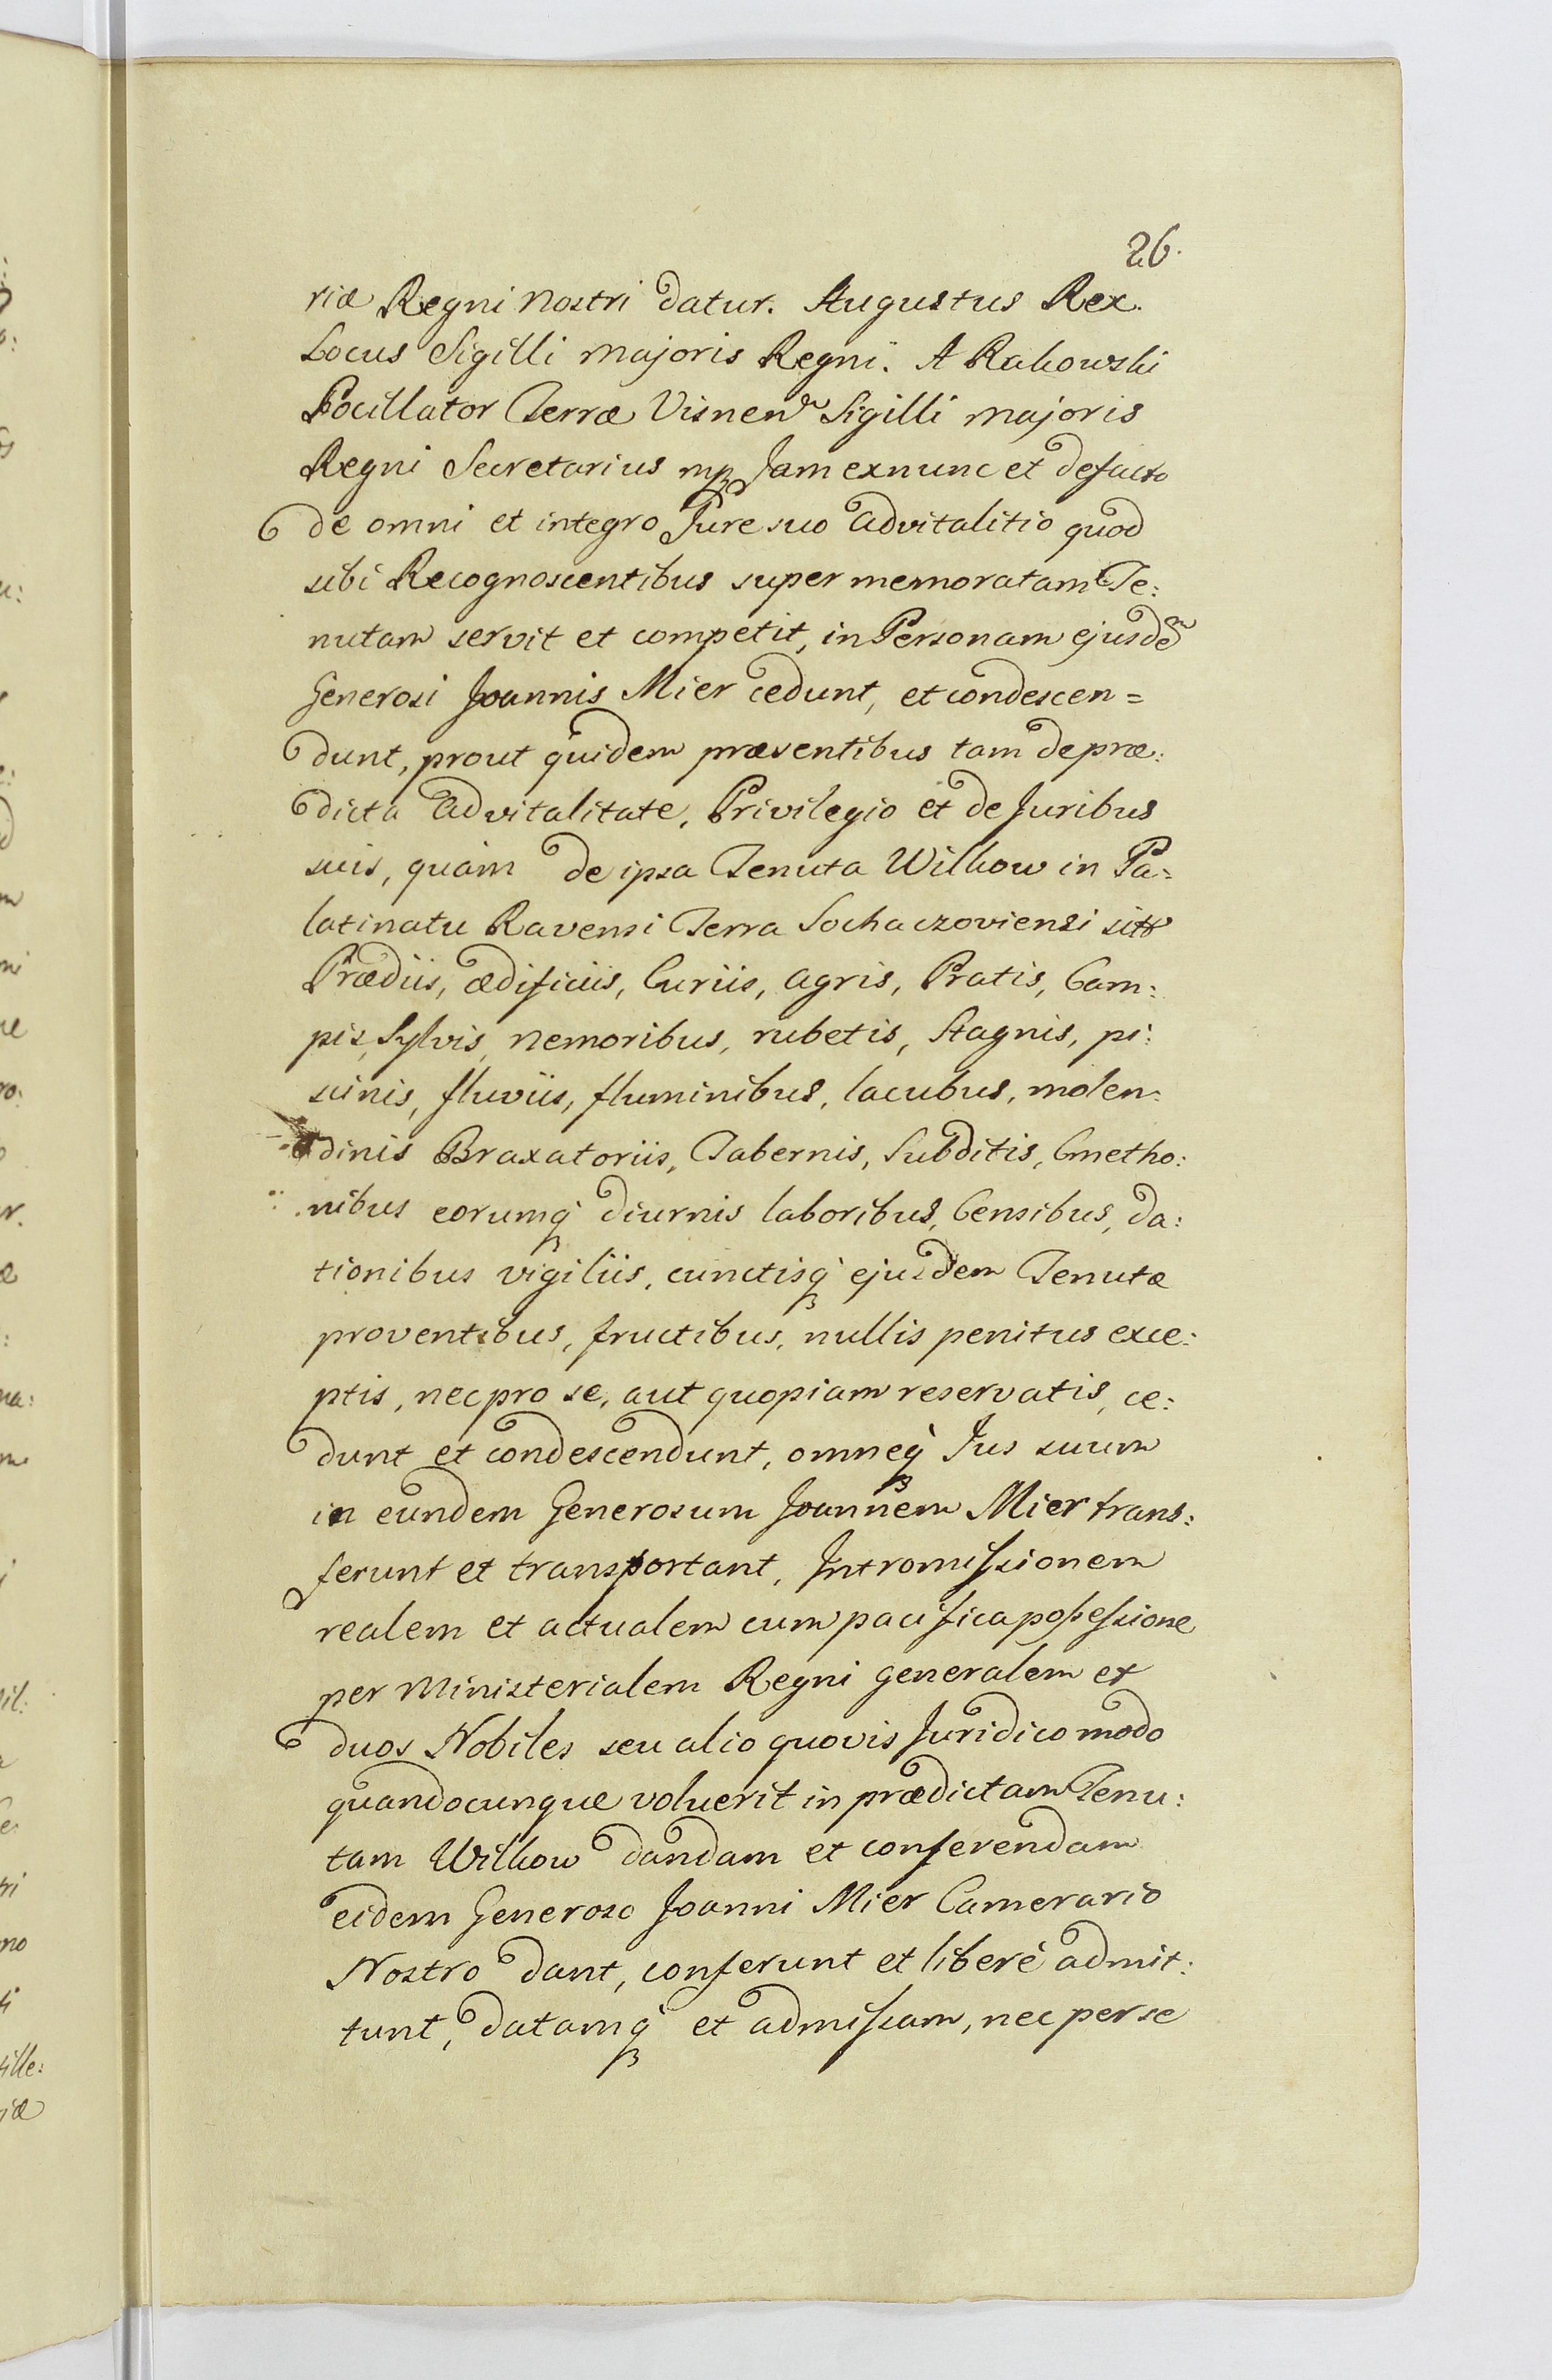 26.
riæ Regni Nostri datur. Augustus Rex.
Locus Sigilli Majoris Regni. A Rakowski
Pocillator Terræ Visnen Sigilli Majoris
Regni Secretarius mp Jam exnunc et defacto
de omni et integro Jure suo advitalitio quod
sibi Recognoscentibus super memoratam Te:
nutam servit et competit, in Personam ejusdem
Generosi Joannis Mier cedunt, et condescen=
dunt, prout quidem præsentibus tam de præ:
dicta advitalitate, Privilegio et de Juribus
suis, quàm de ipsa Tenuta Wilkow in Pa=
latinatu Ravensi Terra Sochaczoviensi
Prædiis, ædificiis, Curiis, agris, Pratis, Cam:
pis, Sylvis, nemoribus, rubetis, Stagnis, pi:
scinis, fluviis, fluminibus, lacubus, molen:
dinis Braxatoriis, Tabernis, Subditis, Cmetho:
nibus eorumq diurnis laboribus, Censibus, da:
tionibus vigiliis, cunctisq ejusdem Tenutæ
proventibus, fructibus, nullis penitus exce:
ptis, nec pro se, aut quopiam reservatis, ce:
dunt et condescendunt, omneq Jus suum
in eundem Generosum Joannem Mier trans:
ferunt et transportant, Intromissionem
realem et actualem cum pacifica possessione
per Ministerialem Regni Generalem et
duos Nobiles seu alio quovis Juridico modo
quandocunque voluerit in prædictam Tenu:
tam Wilkow dandam et conferendam
eidem Generoso Joanni Mier Camerario
Nostro dant, conferunt et liberè admit:
tunt, datamq et admissam, nec per se